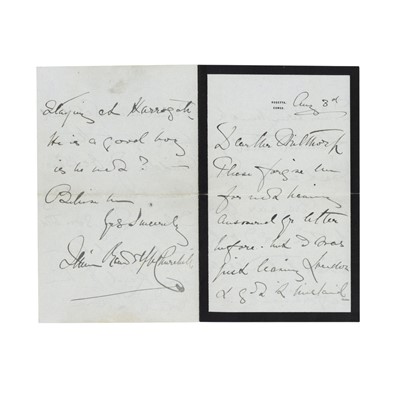 ROSETTA
COWES
Aug 3rd
Dear Mr Milthorp
Please forgive me
for not having
answered yr letter
before. but I was
just leaving London
&
Staying at Harrogate
He is a good boy
is he not? —
Believe me
Yrs Sincerely
Jennie Randolph Churchill